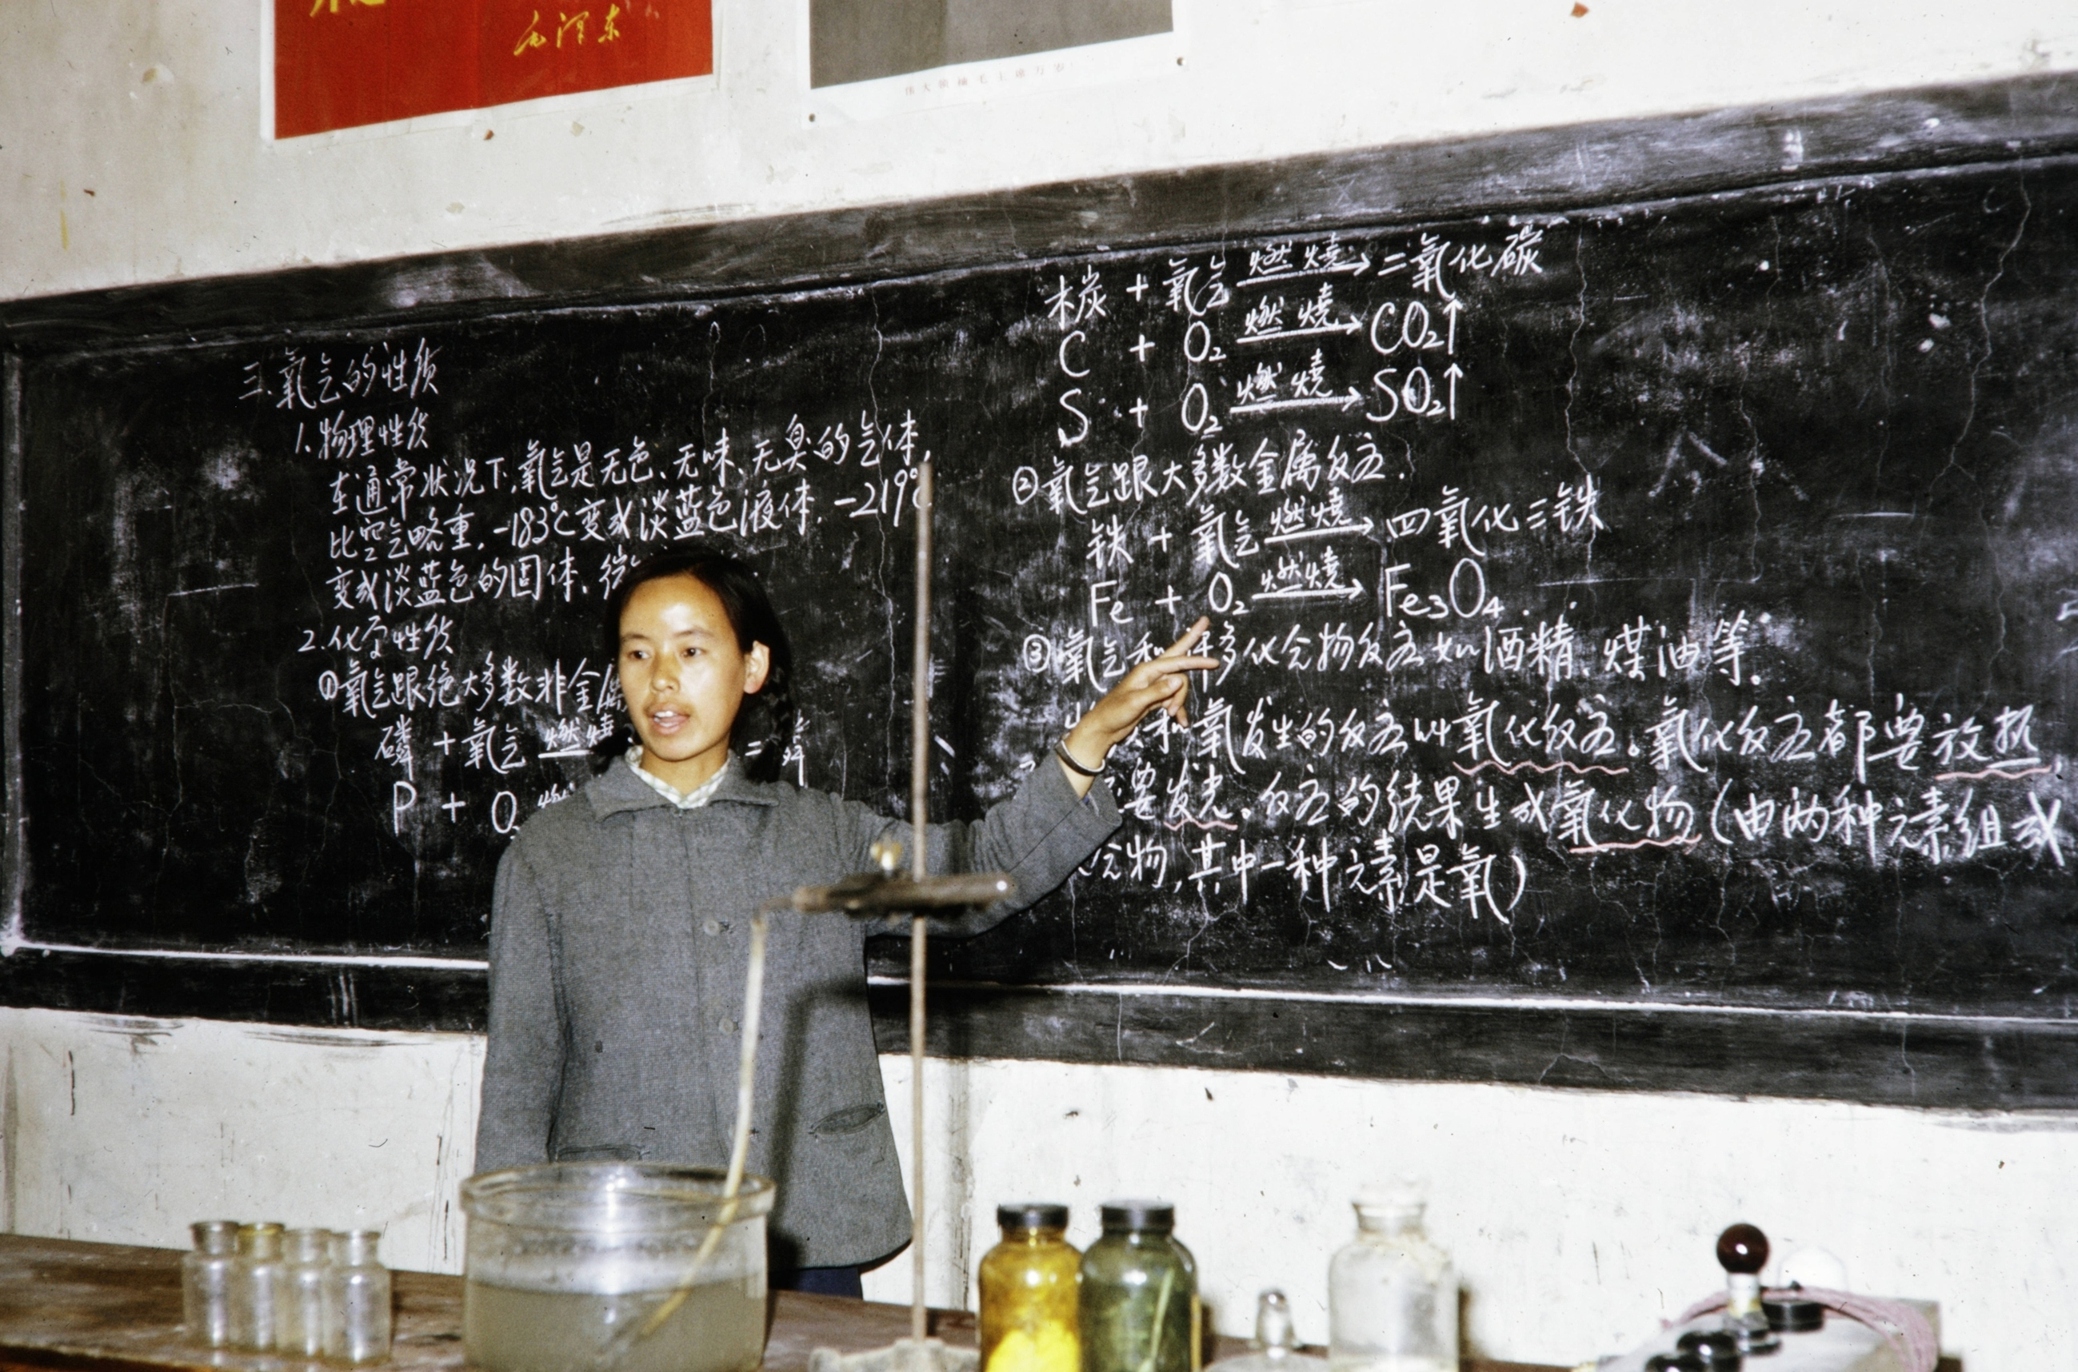 毛泽东
伟大领袖毛主席万岁
三.氧气的性质
1.物理性质
在通常状况下,氧气是无色、无味、无臭的气体,
比空气略重,-183℃变成淡蓝色液体,-219℃
变成淡蓝色的固体,微
2.化学性质
①氧气跟绝大多数非金属
磷 + 氧气 燃烧
P + O₂
木炭 + 氧气 燃烧→ 二氧化碳
C + O₂ 燃烧→ CO₂↑
S + O₂ 燃烧→ SO₂↑
②氧气跟大多数金属反应.
铁 + 氧气 燃烧→ 四氧化三铁
Fe + O₂ 燃烧→ Fe₃O₄
③氧气和 多化合物反应如酒精、煤油等.
和氧发生的反应叫氧化反应。氧化反应都要放热,
要发光。反应的结果生成氧化物(由两种元素组成
合物,其中一种元素是氧)